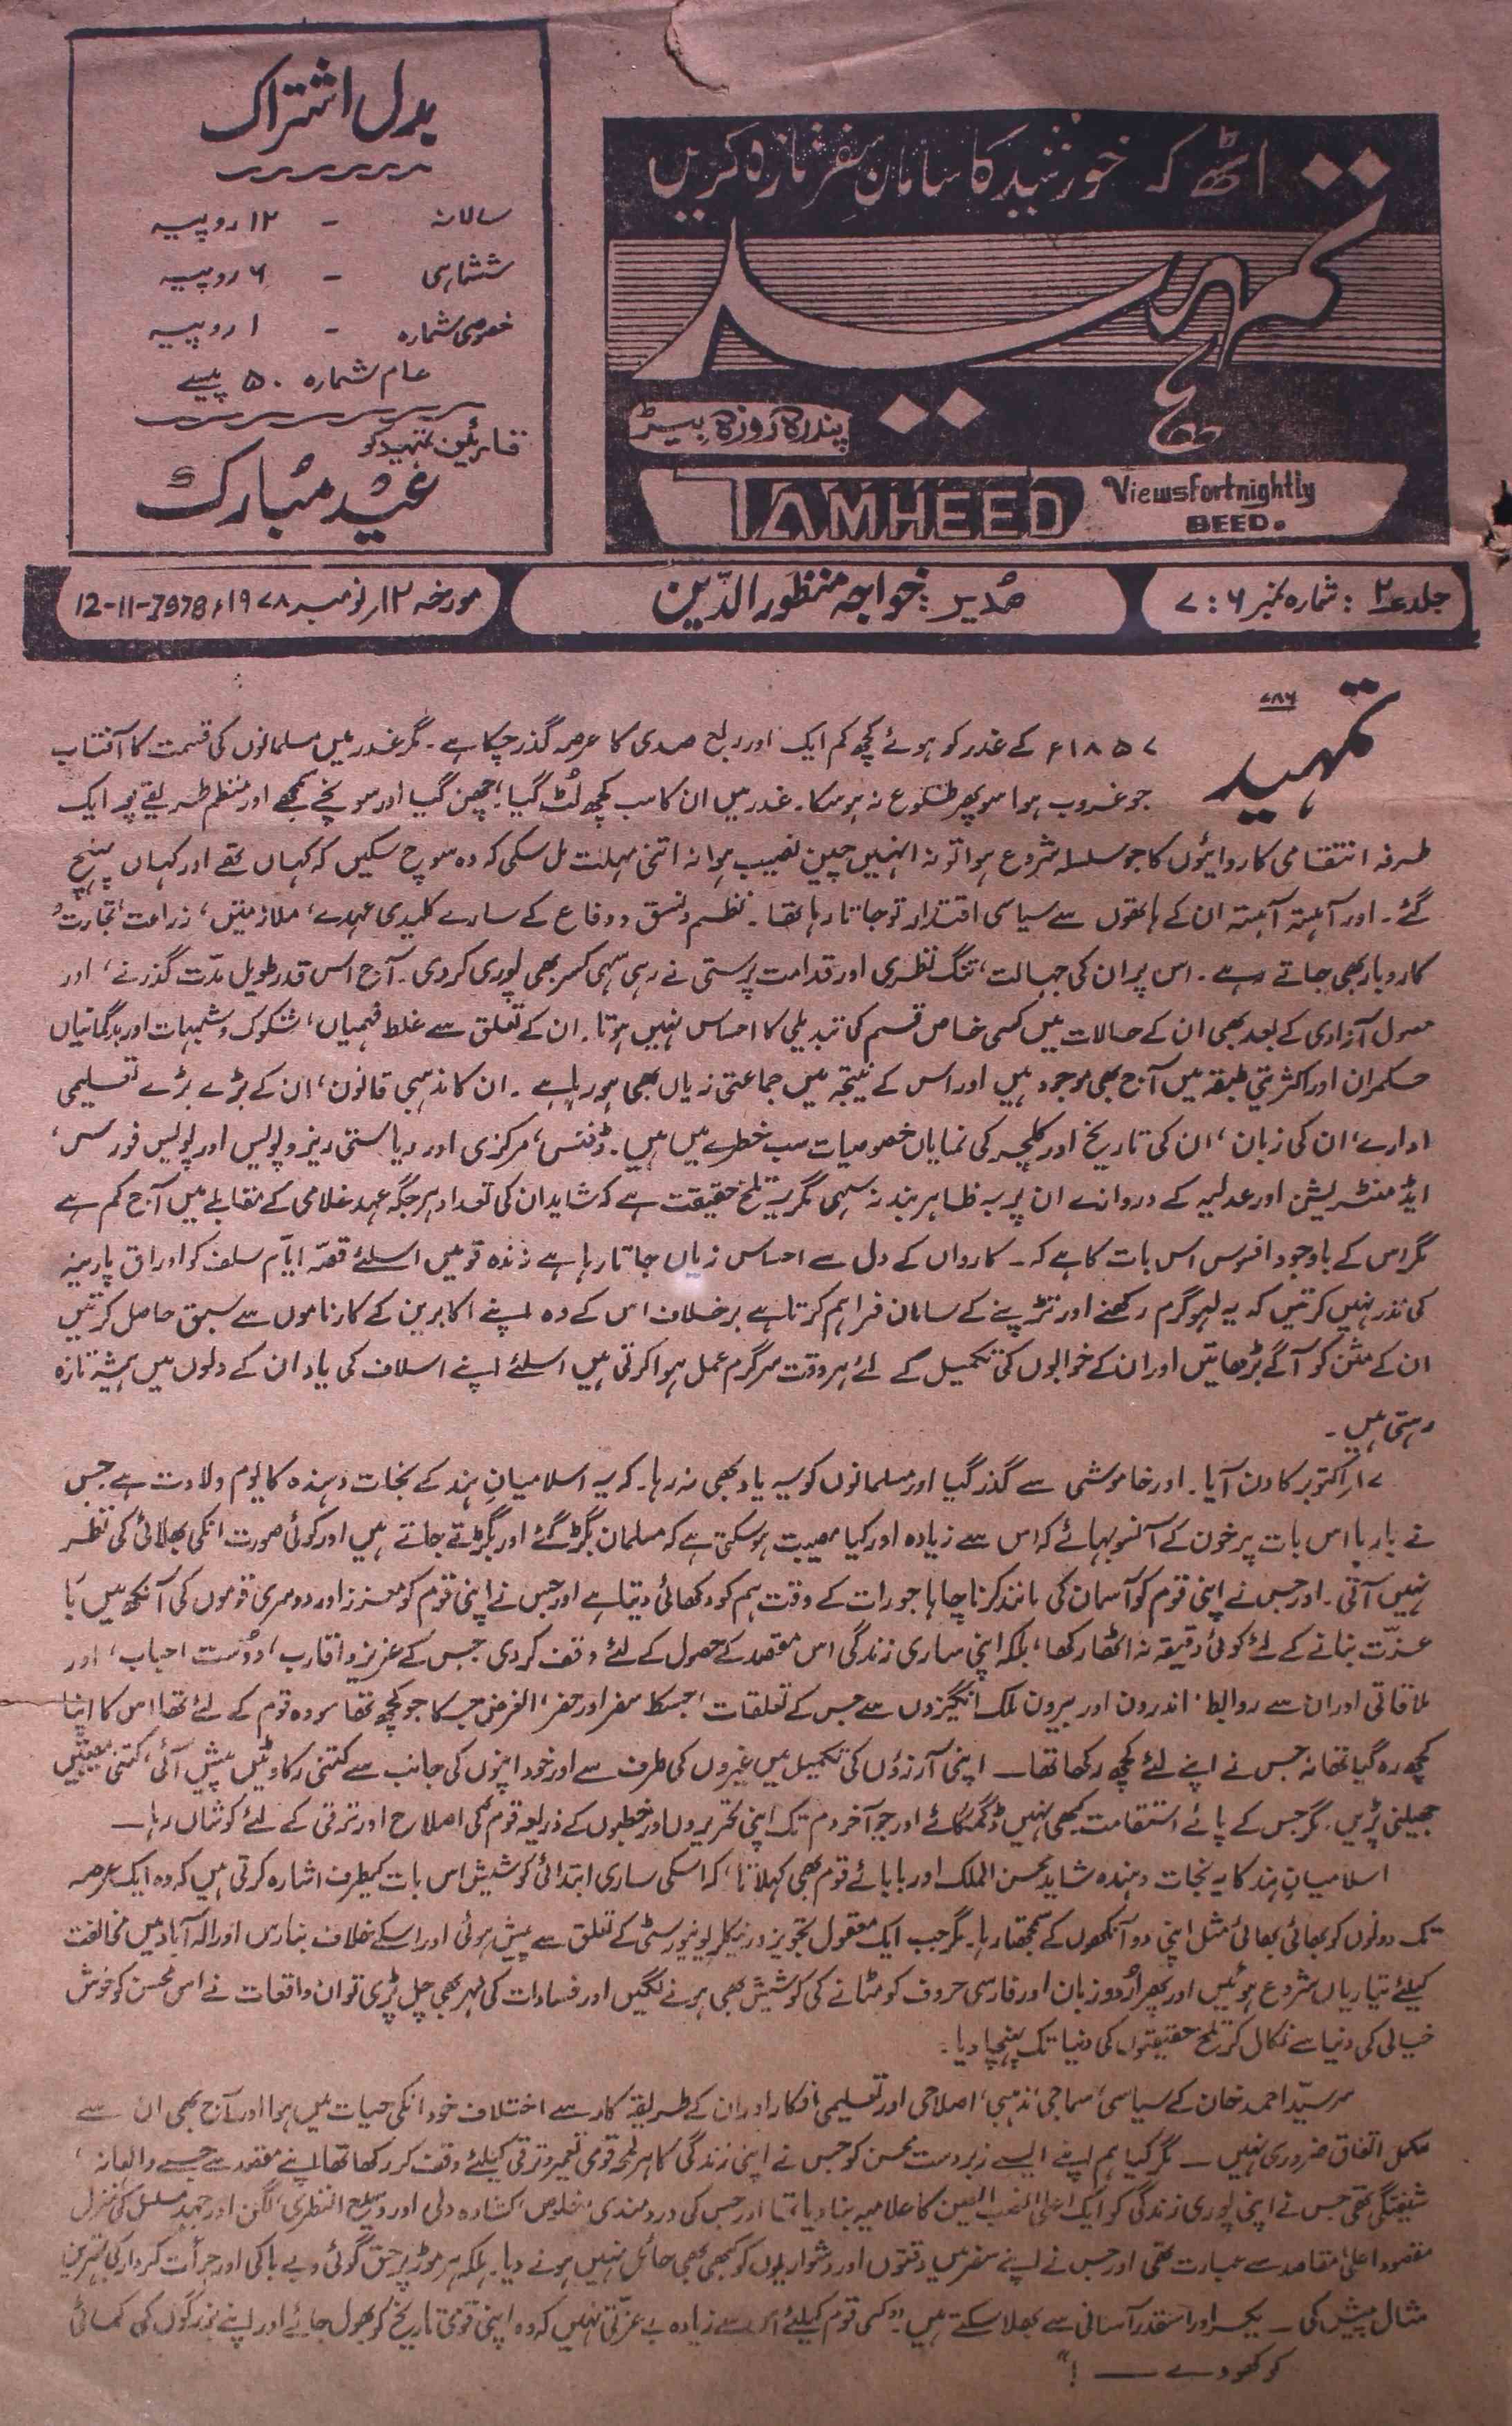 بدل اشتراک
سالانہ - ۱۲ روپیہ
ششماہی - ۶ روپیہ
خصوصی شمارہ - ۱ روپیہ
عام شمارہ ۵۰ پیسے
قارئین تمہید کو
عید مبارک
اٹھ کہ خورشید کا سامانِ سفر تازہ کریں
تمہید
پندرہ روزہ بیڑ
TAMHEED Views Fortnightly
BEED.
جلد ۲ : شمارہ نمبر ۶ : ۷
مدیر : خواجہ منظور الدّین
مورخہ ۱۲ر نومبر ۱۹۷۸ء 12-11-1978
۷۸۶
تمہید
۱۸۵۷ء کے غدر کو ہوئے کچھ کم ایک اور ربع صدی کا عرصہ گذر چکا ہے۔ مگر غدر میں مسلمانوں کی قسمت کا آفتاب
جو غروب ہوا سو پھر طلوع نہ ہو سکا۔ غدر میں ان کا سب کچھ لُٹ گیا، چھن گیا اور سونچے سمجھے اور منظم طریقے پر ایک
طرفہ انتقامی کاروائیوں کا جو سلسلہ شروع ہوا تو نہ انہیں چین نصیب ہوا نہ اتنی مہلت مل سکی کہ وہ سوچ سکیں کہ کہاں تھے اور کہاں پہنچ
گئے۔ اور آہستہ آہستہ ان کے ہاتھوں سے سیاسی اقتدار تو جاتا رہا تھا۔ نظم و نسق و دفاع کے سارے کلیدی عہدے، ملازمتیں، زراعت، تجارت،
کاروبار بھی جاتے رہے۔ اس پر ان کی جہالت، تنگ نظری اور قدامت پرستی نے رہی سہی کسر بھی پوری کر دی۔ آج اس قدر طویل مدّت گذرنے، اور
حصول آزادی کے بعد بھی ان کے حالات میں کسی خاص قسم کی تبدیلی کا احساس نہیں ہوتا۔ ان کے تعلق سے غلط فہمیاں، شکوک و شبہات اور بدگمانیاں
حکمران اور اکثریتی طبقہ میں آج بھی موجود ہیں اور اس کے نتیجہ میں جماعتی زیاں بھی ہو رہا ہے۔ ان کا مذہبی قانون، ان کے بڑے بڑے تعلیمی
ادارے، ان کی زبان، ان کی تاریخ اور کلچر کی نمایاں خصوصیات سب خطرے میں ہیں۔ ڈفنس، مرکزی اور ریاستی ریزرو پولیس اور پولیس فورس،
ایڈمنسٹریشن اور عدلیہ کے دروازے ان پر بہ ظاہر بند نہ سہی مگر یہ تلخ حقیقت ہے کہ شاید ان کی تعداد ہر جگہ عہد غلامی کے مقابلے میں آج کم ہے
مگر اس کے باوجود افسوس اس بات کا ہے کہ۔ کارواں کے دل سے احساس زیاں جاتا رہا ہے زندہ قومیں اسلئے قصّہ ایّام سلف کو اوراق پارینہ
کی نذر نہیں کرتیں کہ یہ لہو گرم رکھنے اور تڑپنے کے سامان فراہم کرتا ہے برخلاف اس کے وہ اپنے اکابرین کے کارناموں سے سبق حاصل کرتیں
ان کے مشن کو آگے بڑھاتیں اور ان کے خوابوں کی تکمیل کے لئے ہر وقت سرگرم عمل ہوا کرتی ہیں اسلئے اپنے اسلاف کی یاد ان کے دلوں میں ہمیشہ تازہ
رہتی ہیں۔
۱۷ر اکتوبر کا دن آیا۔ اور خاموشی سے گذر گیا اور مسلمانوں کو یہ یاد بھی نہ رہا۔ کہ یہ اسلامیانِ ہند کے نجات دہندہ کا یوم ولادت ہے جس
نے بارہا اس بات پر خون کے آنسو بہائے کہ اس سے زیادہ اور کیا مصیبت ہو سکتی ہے کہ مسلمان بگڑ گئے اور بگڑتے جاتے ہیں اور کوئی صورت انکی بھلائی کی نظر
نہیں آتی۔ اور جس نے اپنی قوم کو آسمان کی مانند کرنا چاہا جو رات کے وقت ہم کو دکھائی دیتا ہے اور جس نے اپنی قوم کو معزز اور دوسری قوموں کی آنکھ میں با
عزّت بنانے کے لئے کوئی دقیقہ نہ اٹھا رکھا، بلکہ اپنی ساری زندگی اس مقصد کے حصول کے لئے وقف کر دی جس کے عزیز و اقارب، دوست احباب، اور
ملاقاتی اور ان سے روابط، اندرون اور بیرون ملک انگریزوں سے جس کے تعلقات، جسکا سفر اور حضر، الغرض جسکا جو کچھ تھا سو وہ قوم کے لئے تھا اس کا اپنا
کچھ رہ گیا تھا نہ جس نے اپنے لئے کچھ رکھا تھا — اپنی آرزؤں کی تکمیل میں غیروں کی طرف سے اور خود اپنوں کی جانب سے کتنی رکاوٹیں پیش آئی، کتنی مصیبتیں
جھیلنی پڑیں۔ مگر جس کے پائے استقامت کبھی نہیں ڈگمگائے اور جو آخر دم تک اپنی تحریروں اور خطبوں کے ذریعہ قوم کی اصلاح اور ترقی کے لئے کوشاں رہا —
اسلامیانِ ہند کا یہ نجات دہندہ شاید محسن الملک اور بابائے قوم بھی کہلاتا، کہ اسکی ساری ابتدائی کوشیش اس بات کیطرف اشارہ کرتی ہیں کہ وہ ایک عرصہ
تک دونوں کو بھائی بھائی مثل اپنی دو آنکھوں کے سمجھتا رہا۔ مگر جب ایک معقول تجویز ورنیکلر یونیورسٹی کے تعلق سے پیش ہوئی اور اسکے خلاف بنارس اور الہ آباد میں مخالفت
کیلئے تیاریاں شروع ہوئیں اور پھر اُردو زبان اور فارسی حروف کو مٹانے کی کوشیش بھی ہونے لگیں اور فسادات کی لہر بھی چل پڑی تو ان واقعات نے اس محسن کو خوش
خیالی کی دنیا سے نکال کر تلخ حقیقتوں کی دنیا تک پہنچا دیا۔
سر سیّد احمد خان کے سیاسی، سماجی، مذہبی، اصلاحی اور تعلیمی افکار اور ان کے طریقۂ کار سے اختلاف خود انکی حیات میں ہوا اور آج بھی ان سے
مکمل اتفاق ضروری نہیں — مگر کیا ہم اپنے ایسے زبردست محسن کو جس نے اپنی زندگی کا ہر لمحہ قومی تعمیر و ترقی کیلئے وقف کر رکھا تھا اپنے مقصد سے جسے والہانہ
شیفتگی تھی جس نے اپنی پوری زندگی کو ایک اعلیٰ نصب العین کا علامیہ بنا دیا تھا اور جس کی دردمندی، خلوص، کشادہ دلی اور وسیع النظری، لگن اور جہدِ مسلسل کی منزل
مقصود اعلیٰ مقاصد سے عبارت تھی اور جس نے اپنے سفر میں دقتوں اور دشواریوں کو کبھی بھی حائل نہیں ہونے دیا۔ بلکہ ہر موڑ پر حق گوئی و بے باکی اور جرأت کردار کی بہترین
مثال پیش کی — یکسر اور اسقدر آسانی سے بھلا سکتے ہیں "کسی قوم کیلئے اس سے زیادہ بے عزّتی نہیں کہ وہ اپنی قومی تاریخ کو بھول جائے اور اپنے بزرگوں کی کمائی
کو کھو دے — !"